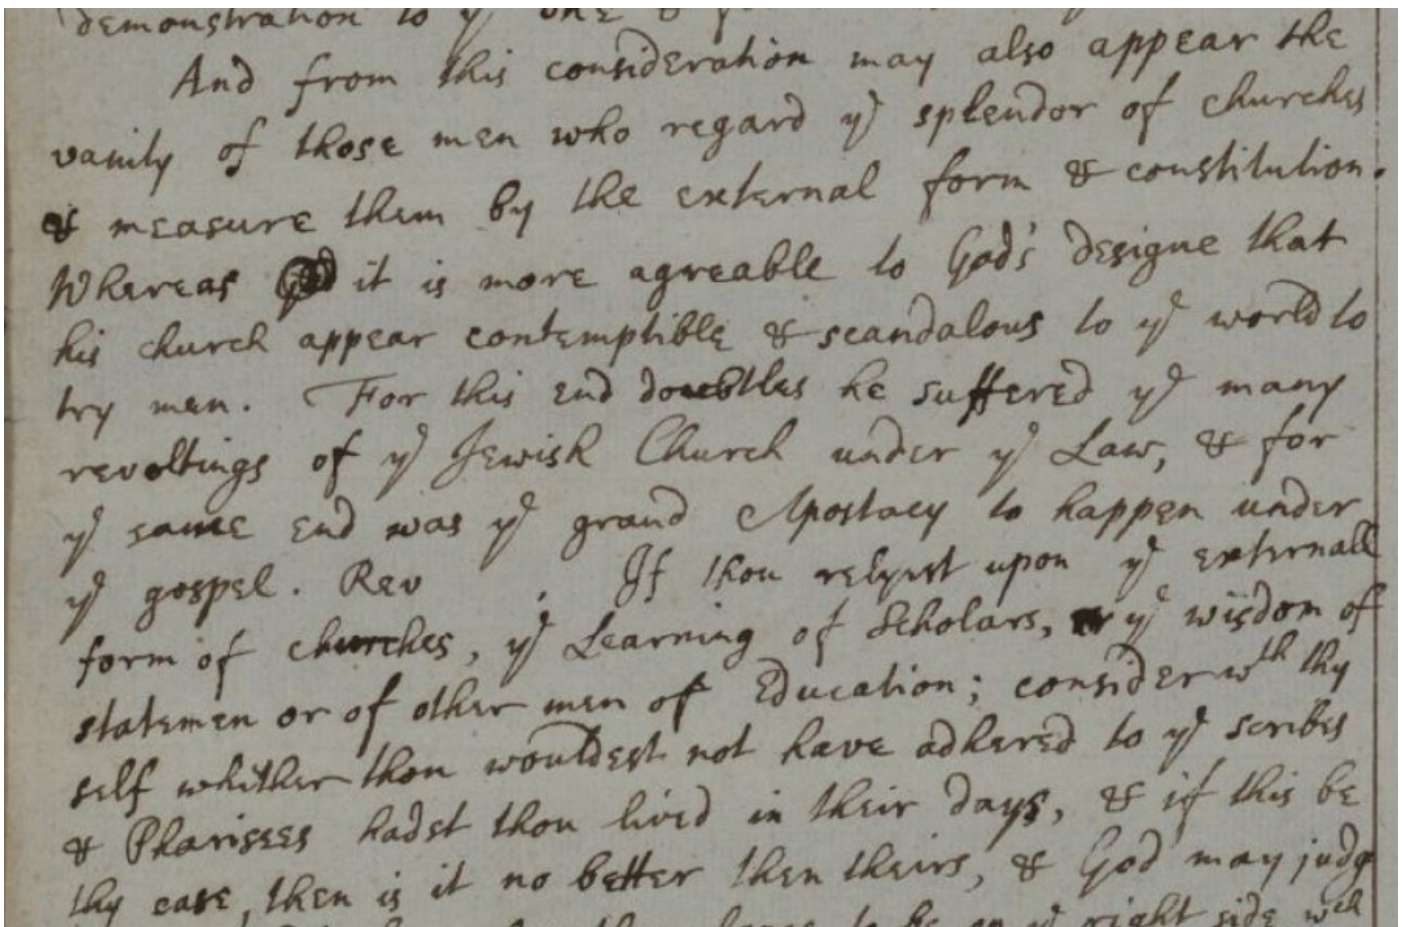 demonstration to yͤ one &
And from this consideration may also appear the
vanity of those men who regard yͤ splendor of churches
& measure them by the external form & constitution.
Whereas it is more agreable to God's designe that
his church appear contemptible & scandalous to yͤ world to
try men. For this end doubtles he suffered yͤ many
revoltings of yͤ Jewish Church under yͤ Law, & for
yͤ same end was yͤ grand Apostacy to happen under
yͤ gospel. Rev . If thou relyest upon yͤ externall
form of churches, yͤ Learning of Scholars, or yͤ wisdom of
statemen or of other men of Education; consider wᵗʰ thy
self whither thou wouldest not have adhered to yͤ scribes
& Pharisees hadst thou lived in their days, & if this be
thy case, then is it no better then theirs, & God may judg
to be on yͤ right side wᶜʰ